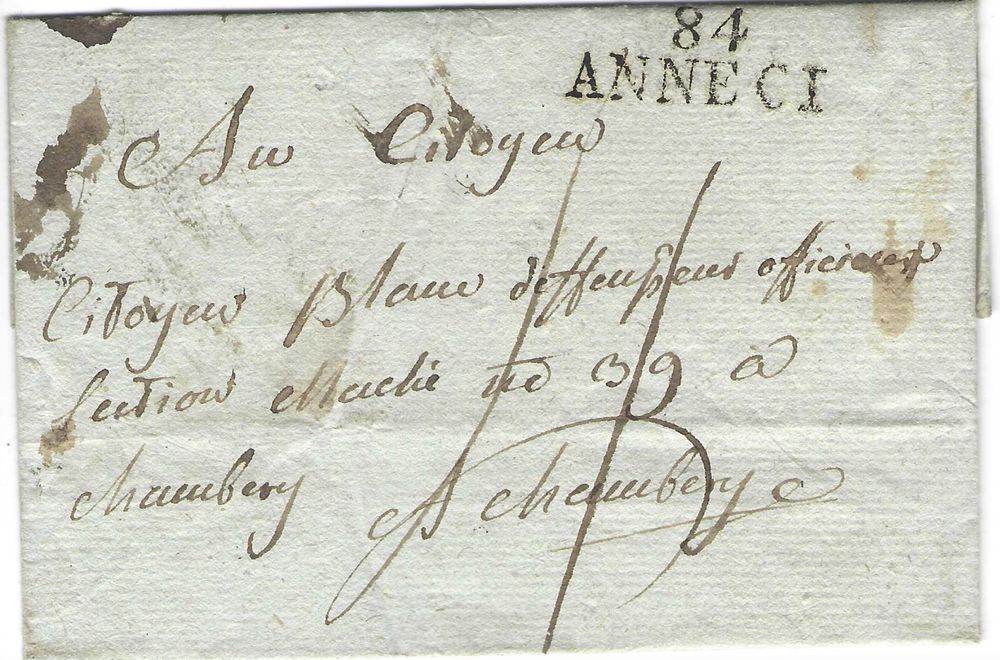 84
ANNECI
Au Citoyen
Citoyen Blanc deffenseur officieux
Section Maché no 39 à
Chambery
A Chambery